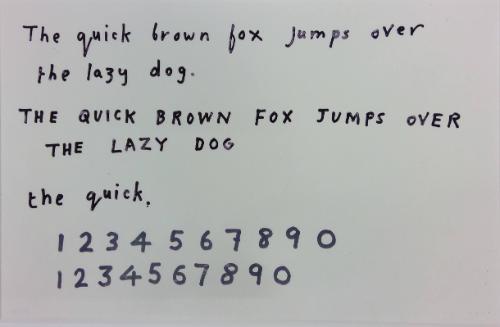 The quick brown fox jumps over
the lazy dog.
THE QUICK BROWN FOX JUMPS OVER
THE LAZY DOG
the quick,
1 2 3 4 5 6 7 8 9 0
1 2 3 4 5 6 7 8 9 0